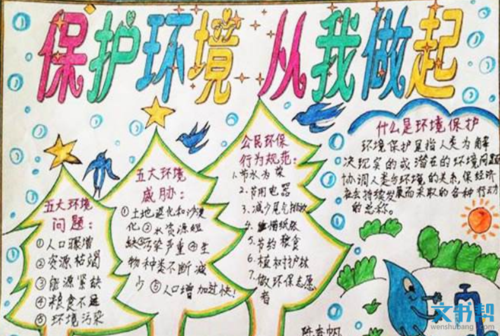 保护环境 从我做起
五大环境
问题:
①人口激增
②资源枯竭
③能源紧缺
④粮食不足
⑤环境污染
五大环境
威胁:
①土地退化和沙漠
化②水资源短
缺③污染严重④生
物种类不断减
少⑤人口增加过快!
公民环保
行为规范:
1.节水为荣
2.节用电器
3.减少尾气排放
5.节约粮食
6.植树护林
7.做环保志愿
者
什么是环境保护
环境保护是指人类为解
决现实的或潜在的环境问题
协调人类与环境的关系,保经济
社会持续发展而采取的各种行动
的总称。
文书帮
wenshubang.com